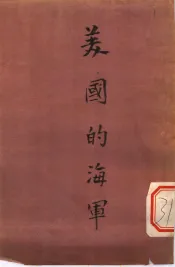 美國的海軍
31